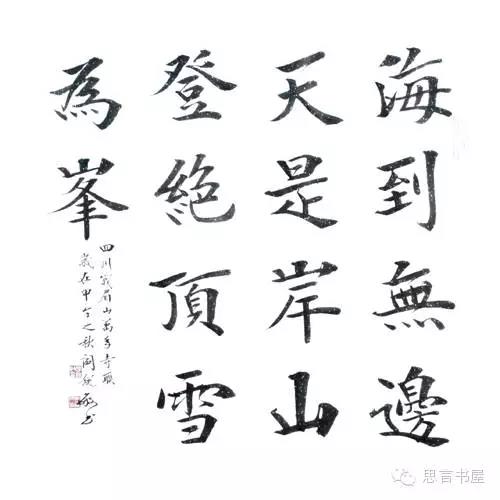 海到無邊
天是岸山
登絕頂雪
為峯
四川峩眉山萬年寺聯
歲在甲午之秋
思言书屋